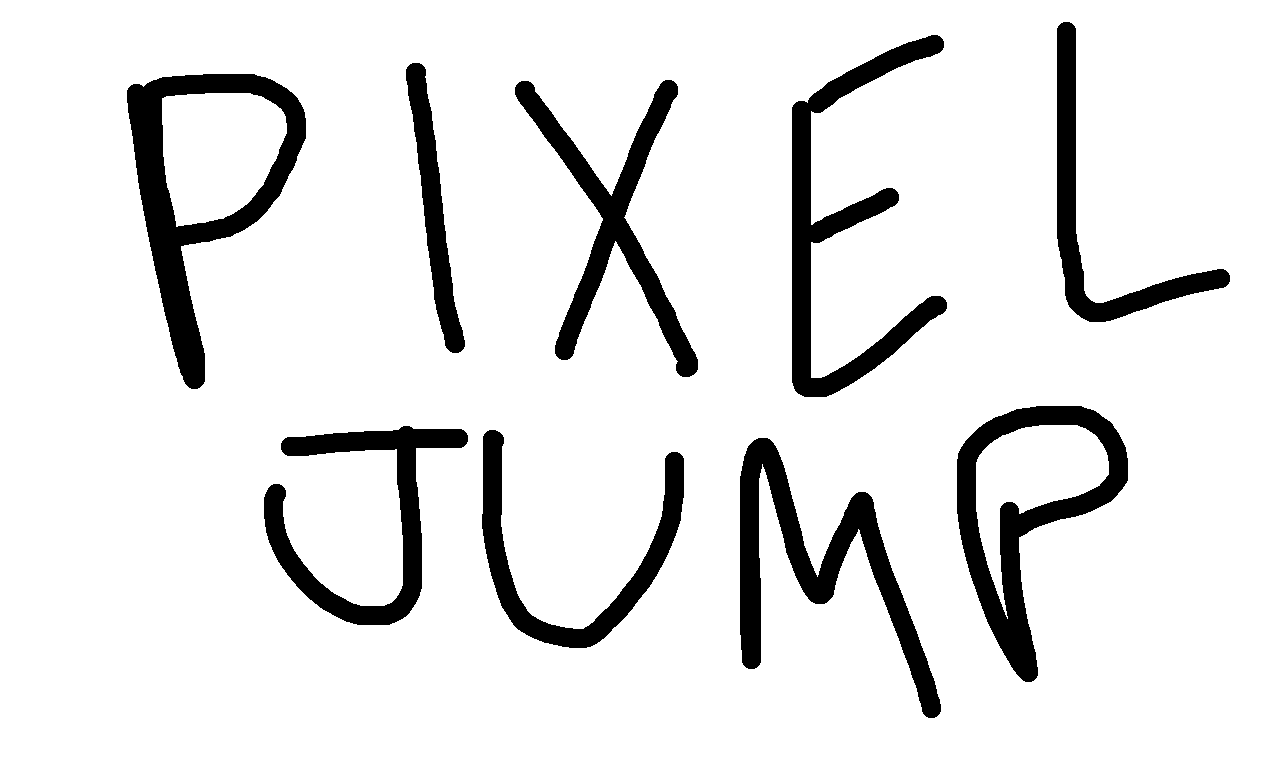 PIXEL
JUMP